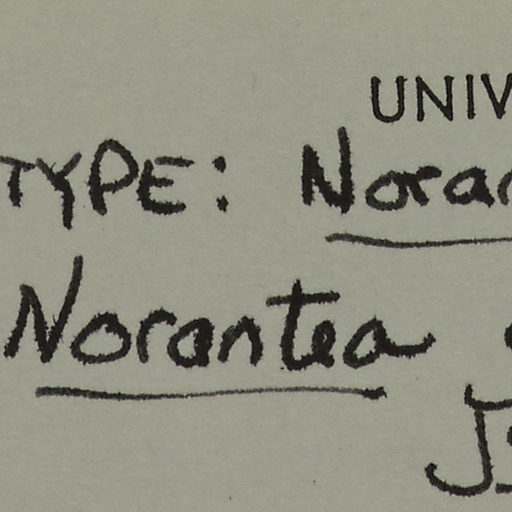 UNIV
TYPE: Noran
Norantea
JS